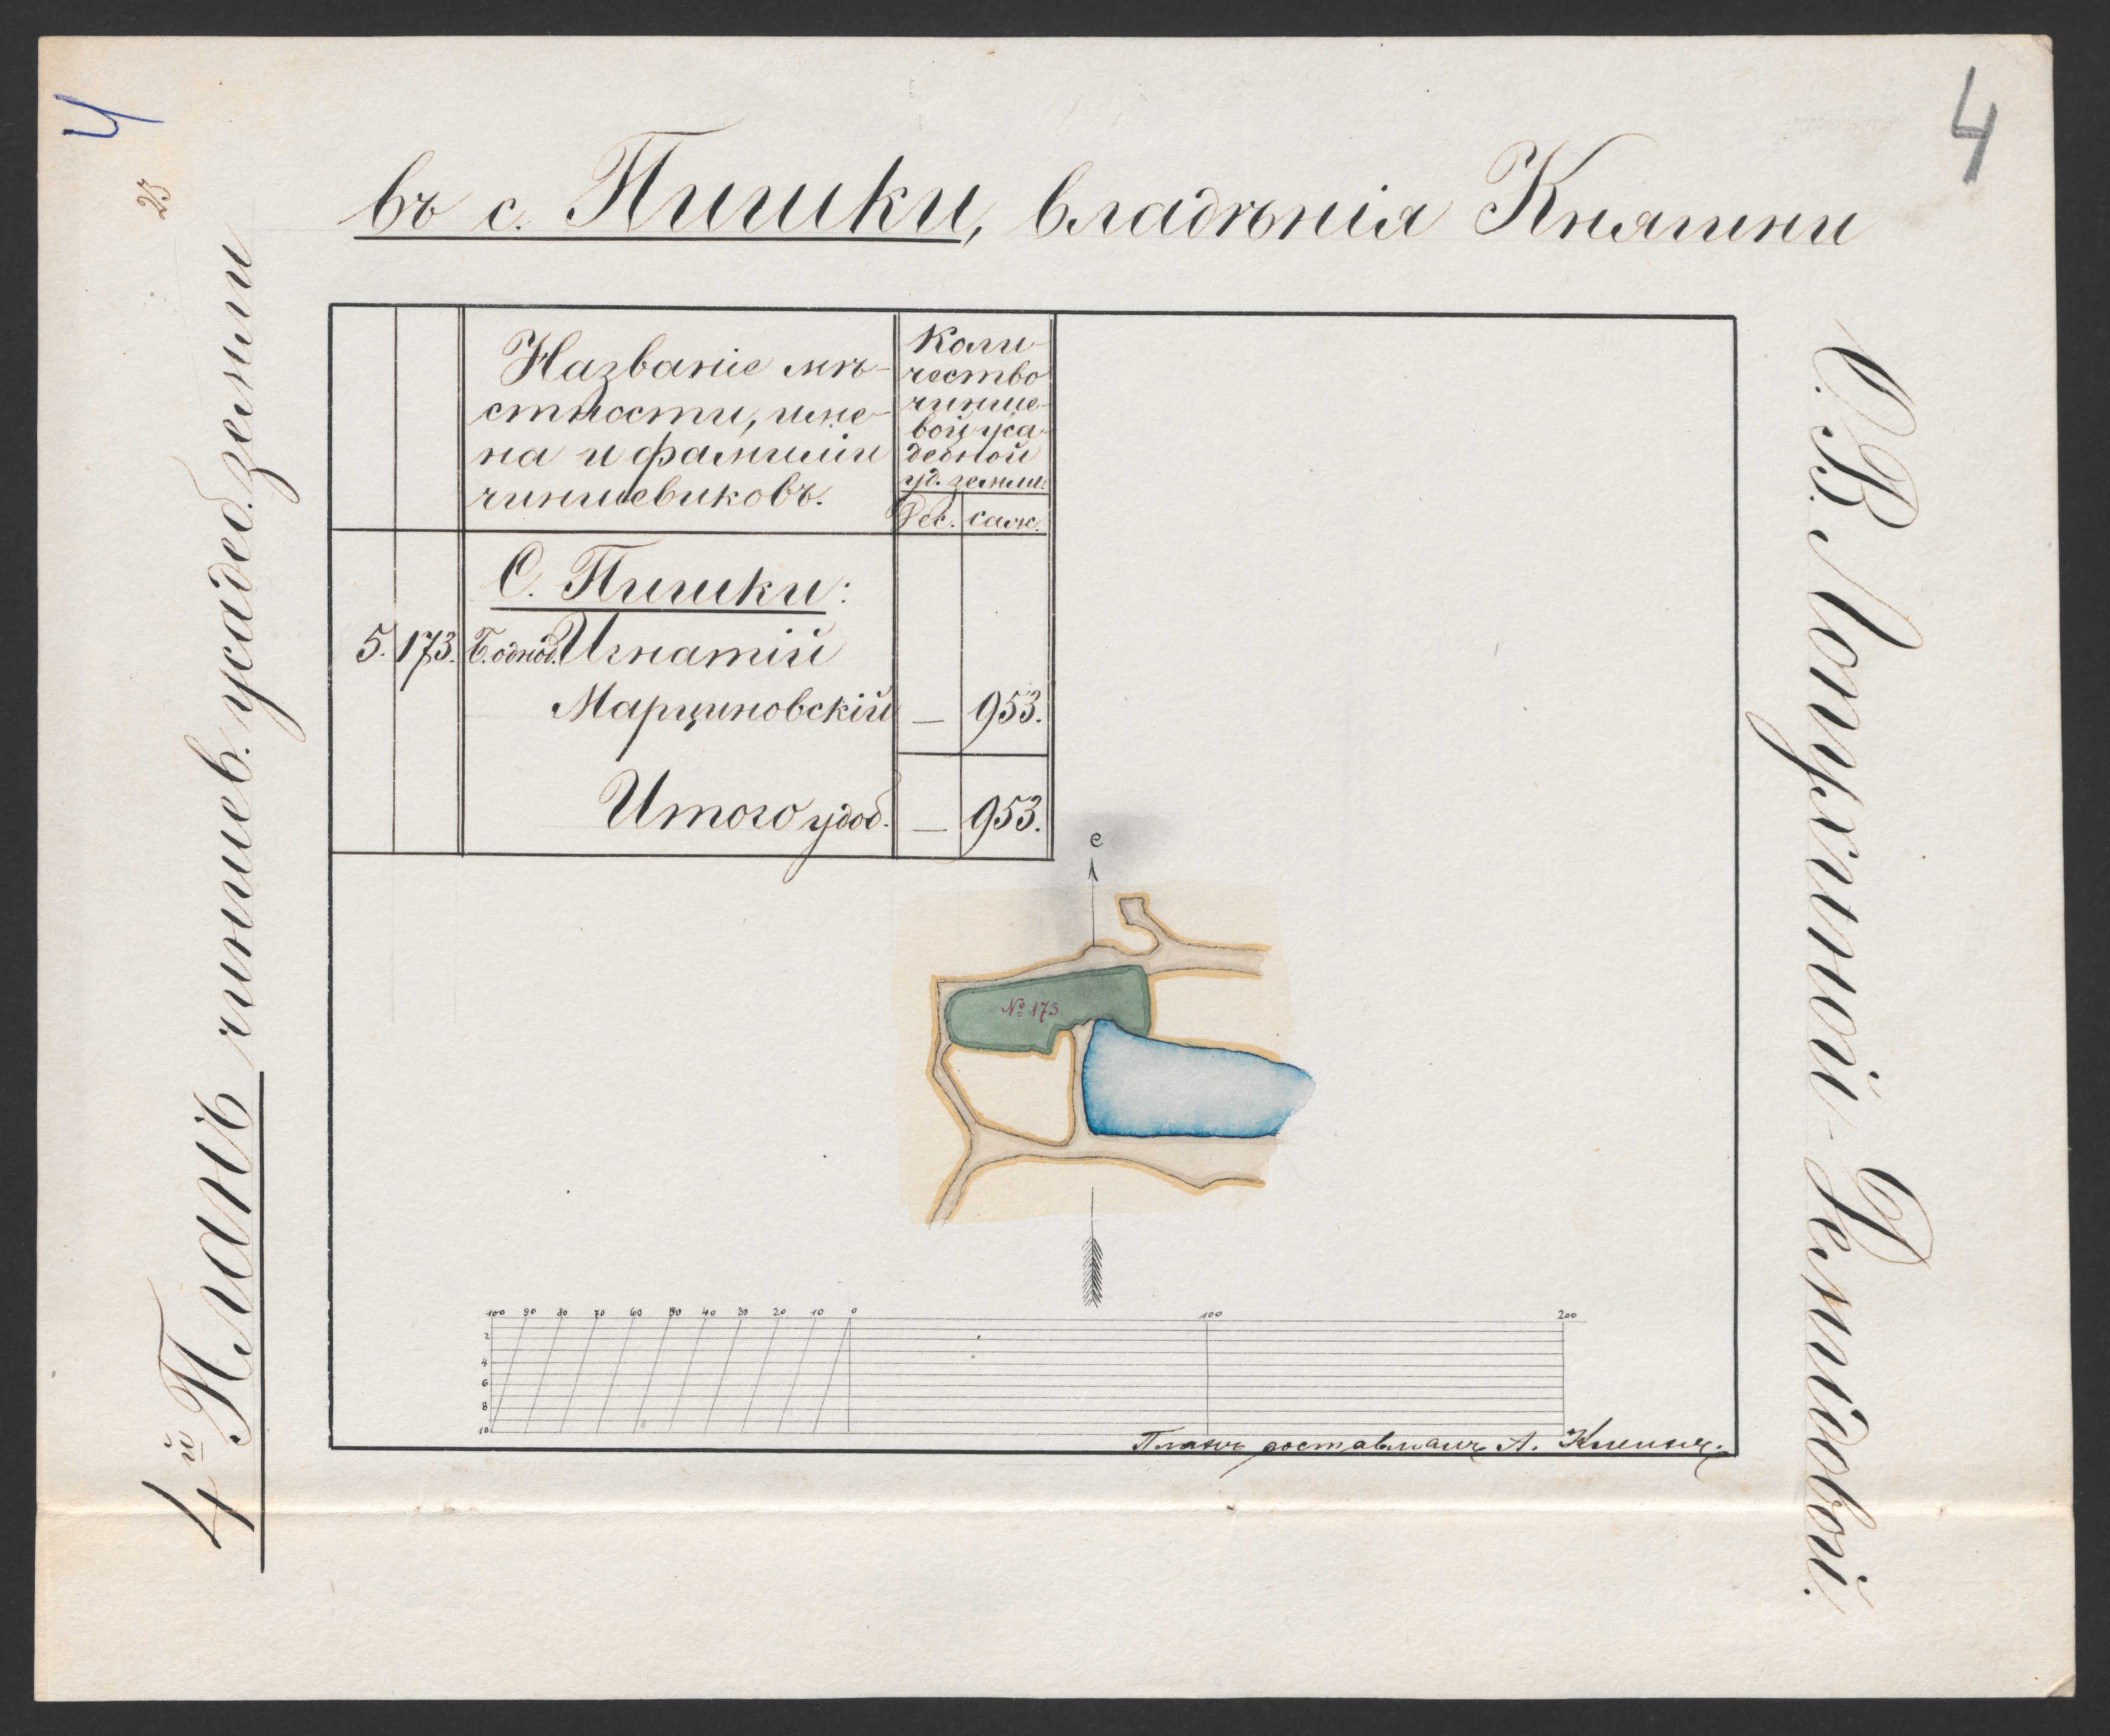 4
4
23
4й Планъ чиншев. усадеб. земли
въ с. Пишки, владѣнія Княгини
О. В. Лопухиной-Демидовой.
Названіе мѣ-
стности, име-
на и фамиліи
чиншевиковъ.
Коли-
чество
чинше-
вой уса-
дебной
уд. земли:
Дес. саж.
С. Пишки:
5. 173. Б. однод. Игнатій
Марциновскій — 953.
Итого удоб. — 953.
с
№ 173
100 90 80 70 60 50 40 30 20 10 0 100 200
2
4
6
8
10
Планъ составлялъ А.